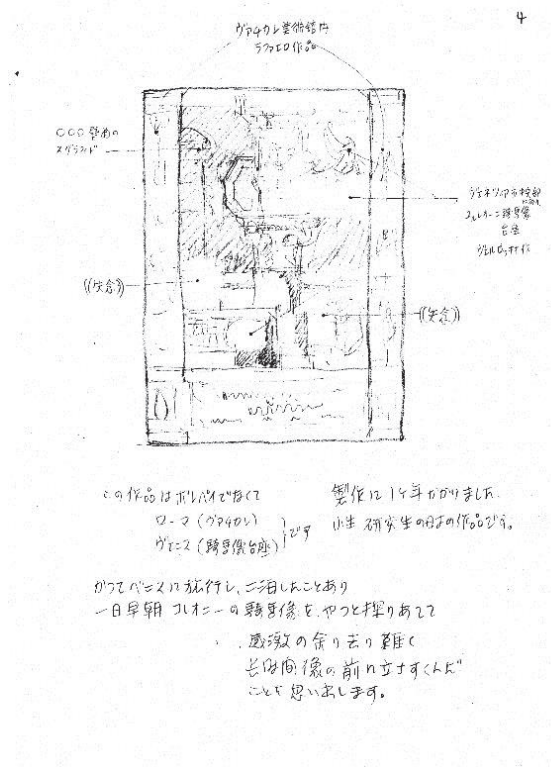 4
ヴァチカン美術館内
ラファエロ作品
ヴェネツィア
コレオーニ騎馬像
台座
((失念))
((失念))
この作品はポンペイでなくて
ローマ (ヴァチカン)
ヴェニス (騎馬像台座)
です
製作に1ヶ年かかりました
小生 研究生の時の作品です。
かつてベニスに旅行し、二泊したことあり
一日早朝 コレオニーの騎馬像を、やっと探りあてて
感激の余り去り難く
長時間像の前に立ちすくんだ
ことを思い出します。